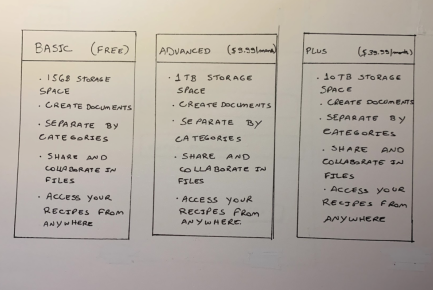 BASIC (FREE)
· 15GB STORAGE
SPACE
· CREATE DOCUMENTS
· SEPARATE BY
CATEGORIES
· SHARE AND
COLLABORATE IN
FILES
· ACCESS YOUR
RECIPES FROM
ANYWHERE
ADVANCED ($9.99/month)
· 1TB STORAGE
SPACE
· CREATE DOCUMENTS
· SEPARATE BY
CATEGORIES
· SHARE AND
COLLABORATE IN
FILES
· ACCESS YOUR
RECIPES FROM
ANYWHERE.
PLUS ($39.99/month)
· 10TB STORAGE
SPACE
· CREATE DOCUMENTS
· SEPARATE BY
CATEGORIES
· SHARE AND
COLLABORATE IN
FILES
· ACCESS YOUR
RECIPES FROM
ANYWHERE